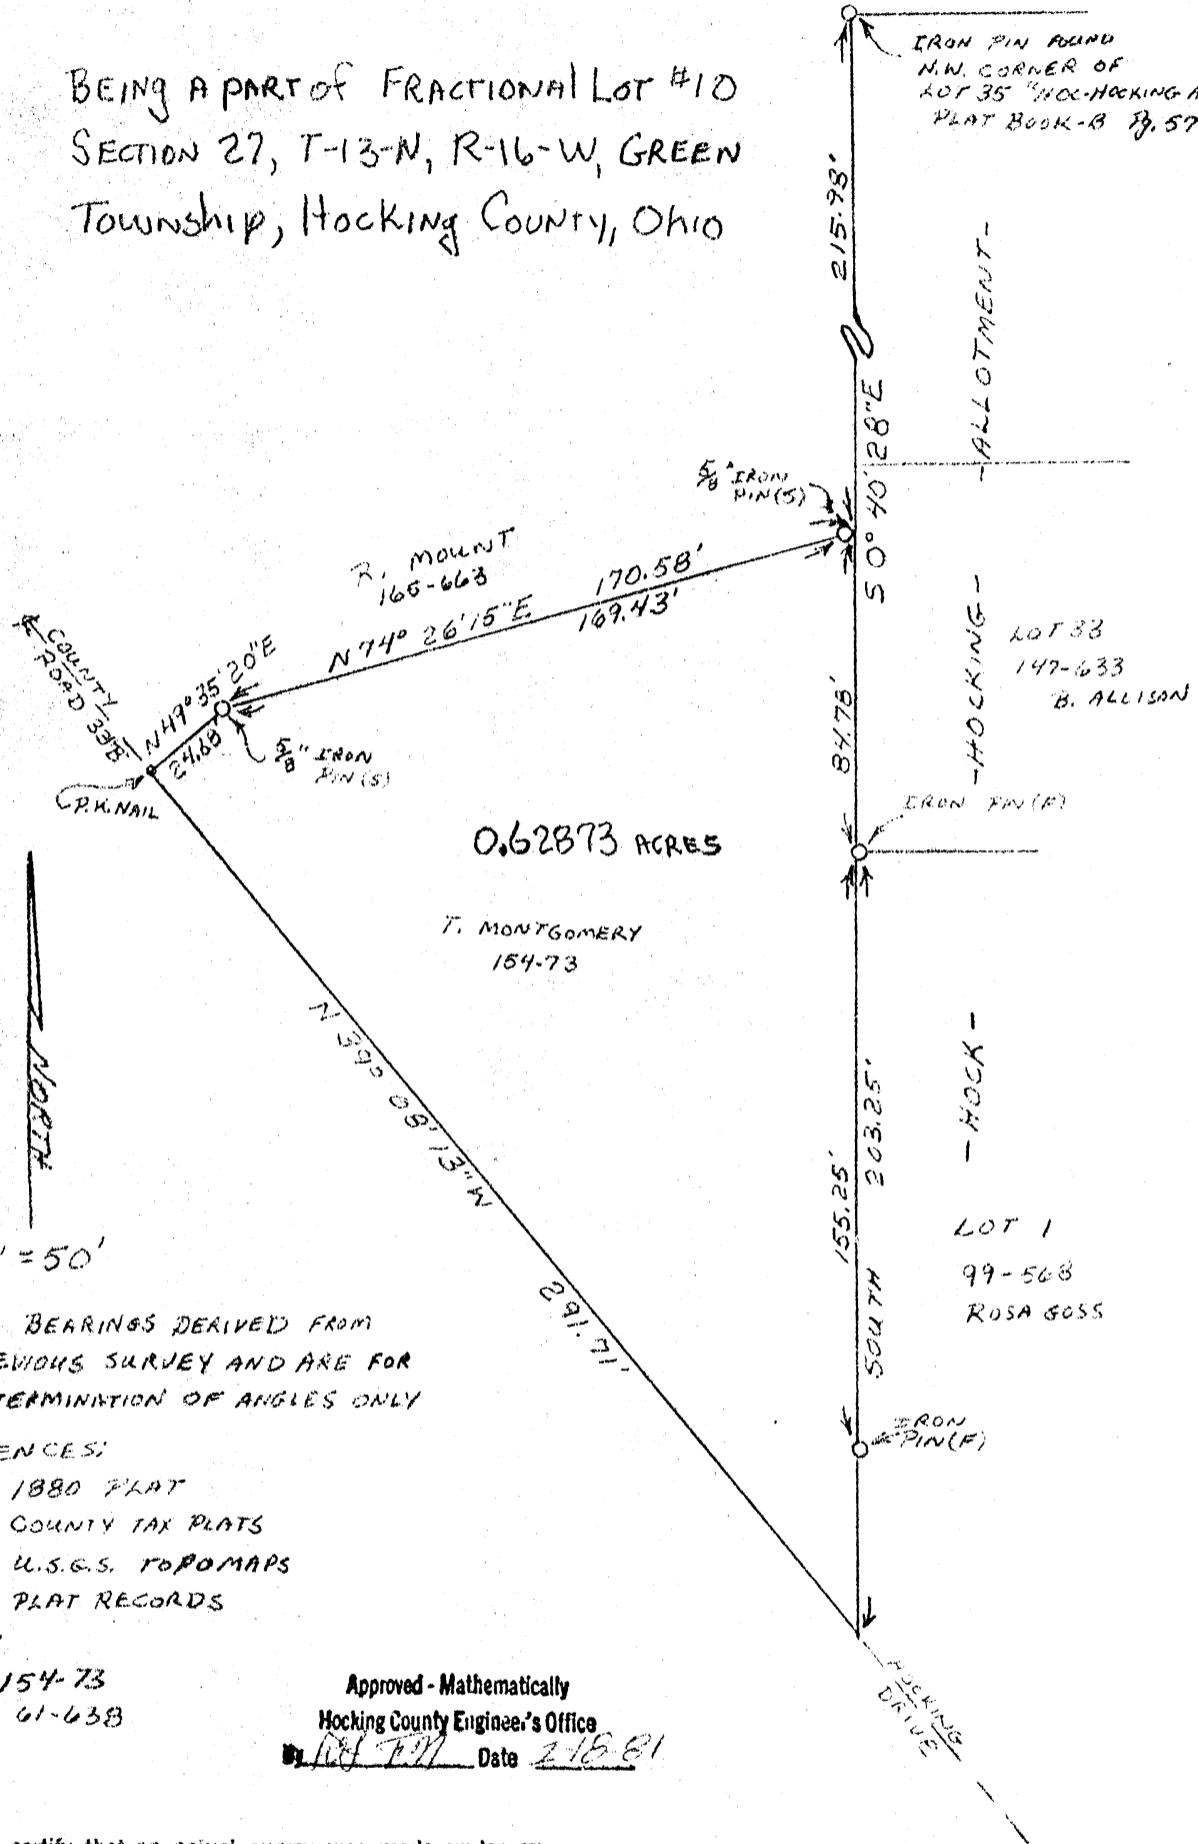 BEING A PART OF FRACTIONAL LOT #10
SECTION 27, T-13-N, R-16-W, GREEN
TOWNSHIP, HOCKING COUNTY, OHIO
IRON PIN FOUND
N.W. CORNER OF
LOT 35 "HOC-HOCKING A
PLAT BOOK-B Pg. 57
215.98'
-ALLOTMENT-
S 0° 40' 28" E
5/8" IRON
PIN(S)
R. MOUNT
165-663
170.58'
N 74° 26' 15" E
169.43'
COUNTY
ROAD 33B
N 49° 35' 20" E
24.68'
5/8" IRON
PIN(S)
P.K. NAIL
84.78'
-HOCKING-
LOT 33
147-633
B. ALLISON
IRON PIN(F)
0.62873 ACRES
T. MONTGOMERY
154-73
N 39° 08' 13" W
291.71'
NORTH
155.25'
SOUTH 203.25'
-HOCK-
LOT 1
99-568
ROSA GOSS
IRON
PIN(F)
' = 50'
BEARINGS DERIVED FROM
EVIOUS SURVEY AND ARE FOR
TERMINATION OF ANGLES ONLY
ENCES:
1880 PLAT
COUNTY TAX PLATS
U.S.G.S. TOPOMAPS
PLAT RECORDS
154-73
61-638
Approved - Mathematically
Hocking County Engineer's Office
By Date 2-18-81
HOCKING
DRIVE